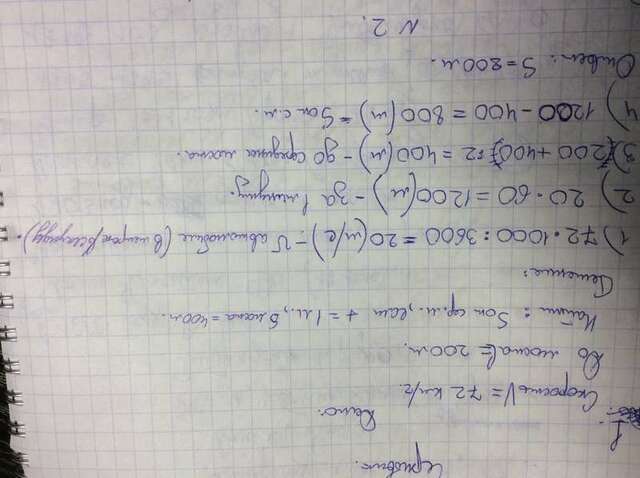 Черновик.
1.
Дано:
Скорость V = 72 км/ч.
До моста l = 200м.
Найти: S от сер.м., если t = 1м., S моста = 400м.
Решение:
1) 72·1000:3600 = 20(м/с) - V автомобиля (в метрах/в секунду).
2) 20·60 = 1200(м) - за 1 минуту.
3) 200+400:2 = 400(м) - до середины моста.
4) 1200-400 = 800(м) - S от с.м.
Ответ: S = 800м.
N 2.